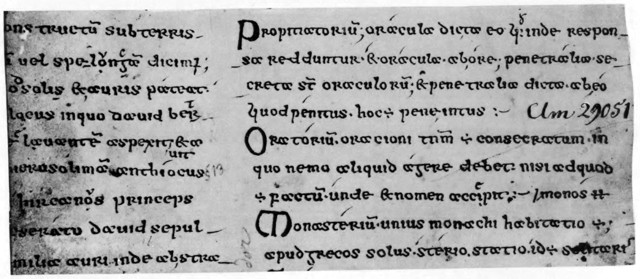 ons tructū subterris
uel spelongā dicim';
solis & auris pateat.
lacus inquo dauid
lauantē aspexit; & a
hierosolimā anthiocus
hircanos princeps
eserato dauid sepul
miliæ auri inde abstra
Propitiatoriū; oracula dicta eo qđ inde respon
sa redduntur & oracula abore; penetralia se
creta st̄ oraculorū; & penetralia dicta abeo
quod penitus. hoc ÷ pene intus :- Clm 29051
Oratoriū. oracioni tm̄ ÷ consecratum. in
quo nemo aliquid agere debet: nisi adquod
÷ factū. unde & nomen accepit :- monos
Monasteriū. unius monachi habitatio ÷;
apud grecos solus. sterio. statio. id÷ solitari